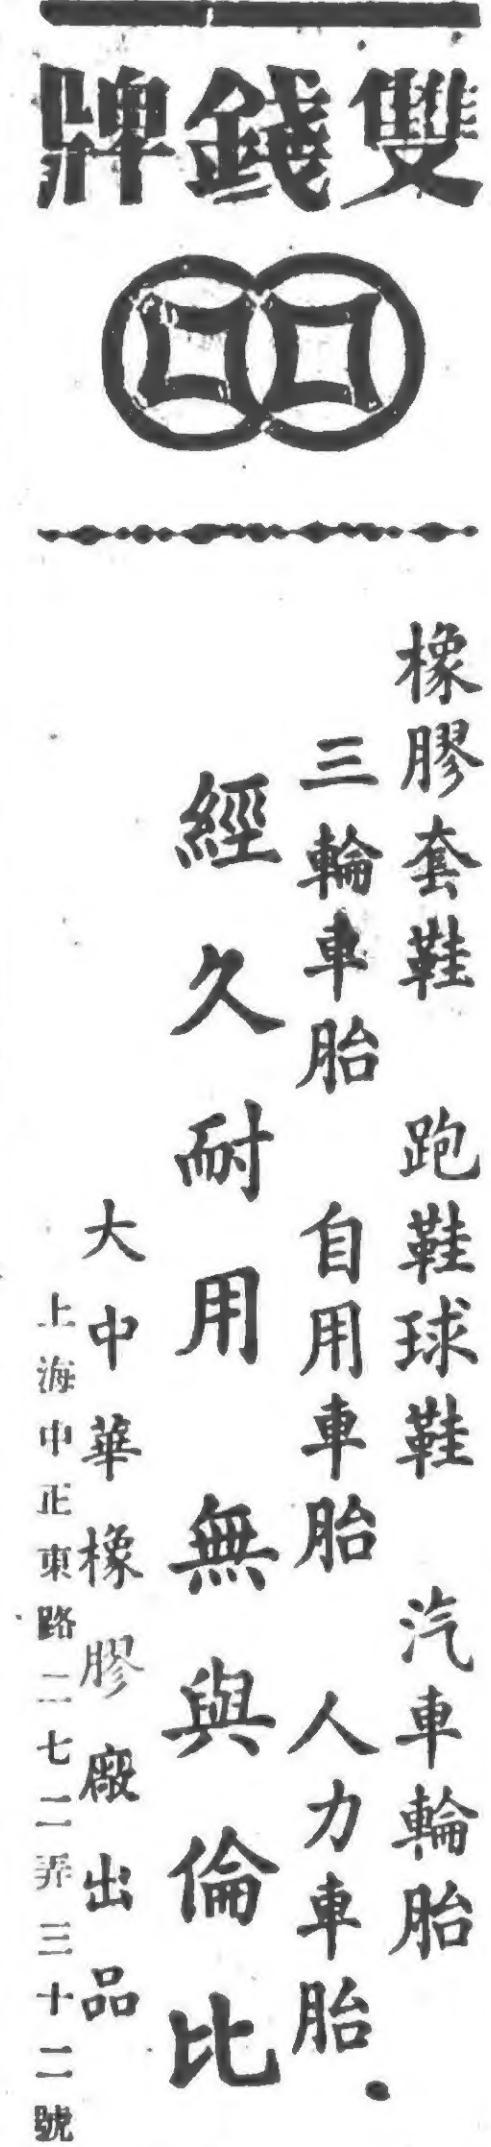 雙錢牌
橡膠套鞋 跑鞋球鞋 汽車輪胎
三輪車胎 自用車胎 人力車胎
經久耐用 無與倫比
大中華橡膠廠出品
上海中正東路二七二弄三十二號